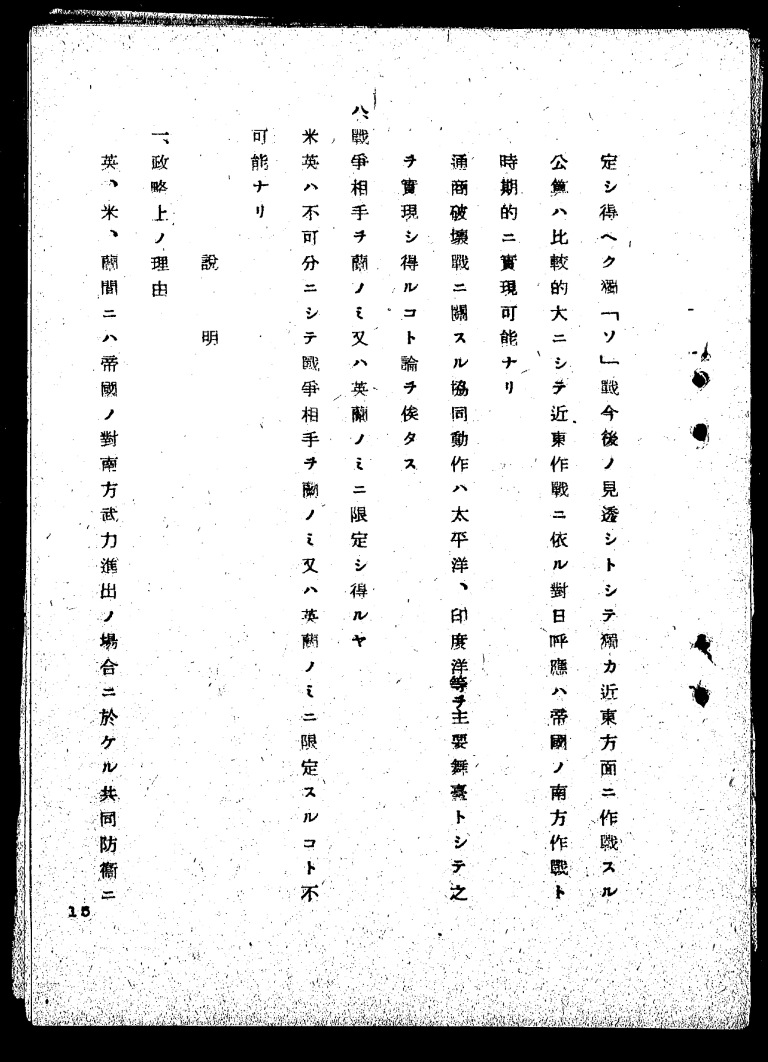 定シ得ヘク獨「ソ」戰今後ノ見透シトシテ獨カ近東方面ニ作戰スル
公算ハ比較的大ニシテ近東作戰ニ依ル對日呼應ハ帝國ノ南方作戰ト
時期的ニ實現可能ナリ
通商破壞戰ニ關スル協同動作ハ太平洋、印度洋等ヲ主要舞臺トシテ之
ヲ實現シ得ルコト論ヲ俟タス
八、戰爭相手ヲ蘭ノミ又ハ英蘭ノミニ限定シ得ルヤ
米英ハ不可分ニシテ戰爭相手ヲ蘭ノミ又ハ英蘭ノミニ限定スルコト不
可能ナリ
說明
一、政略上ノ理由
英、米、蘭間ニハ帝國ノ對南方武力進出ノ場合ニ於ケル共同防衞ニ
15